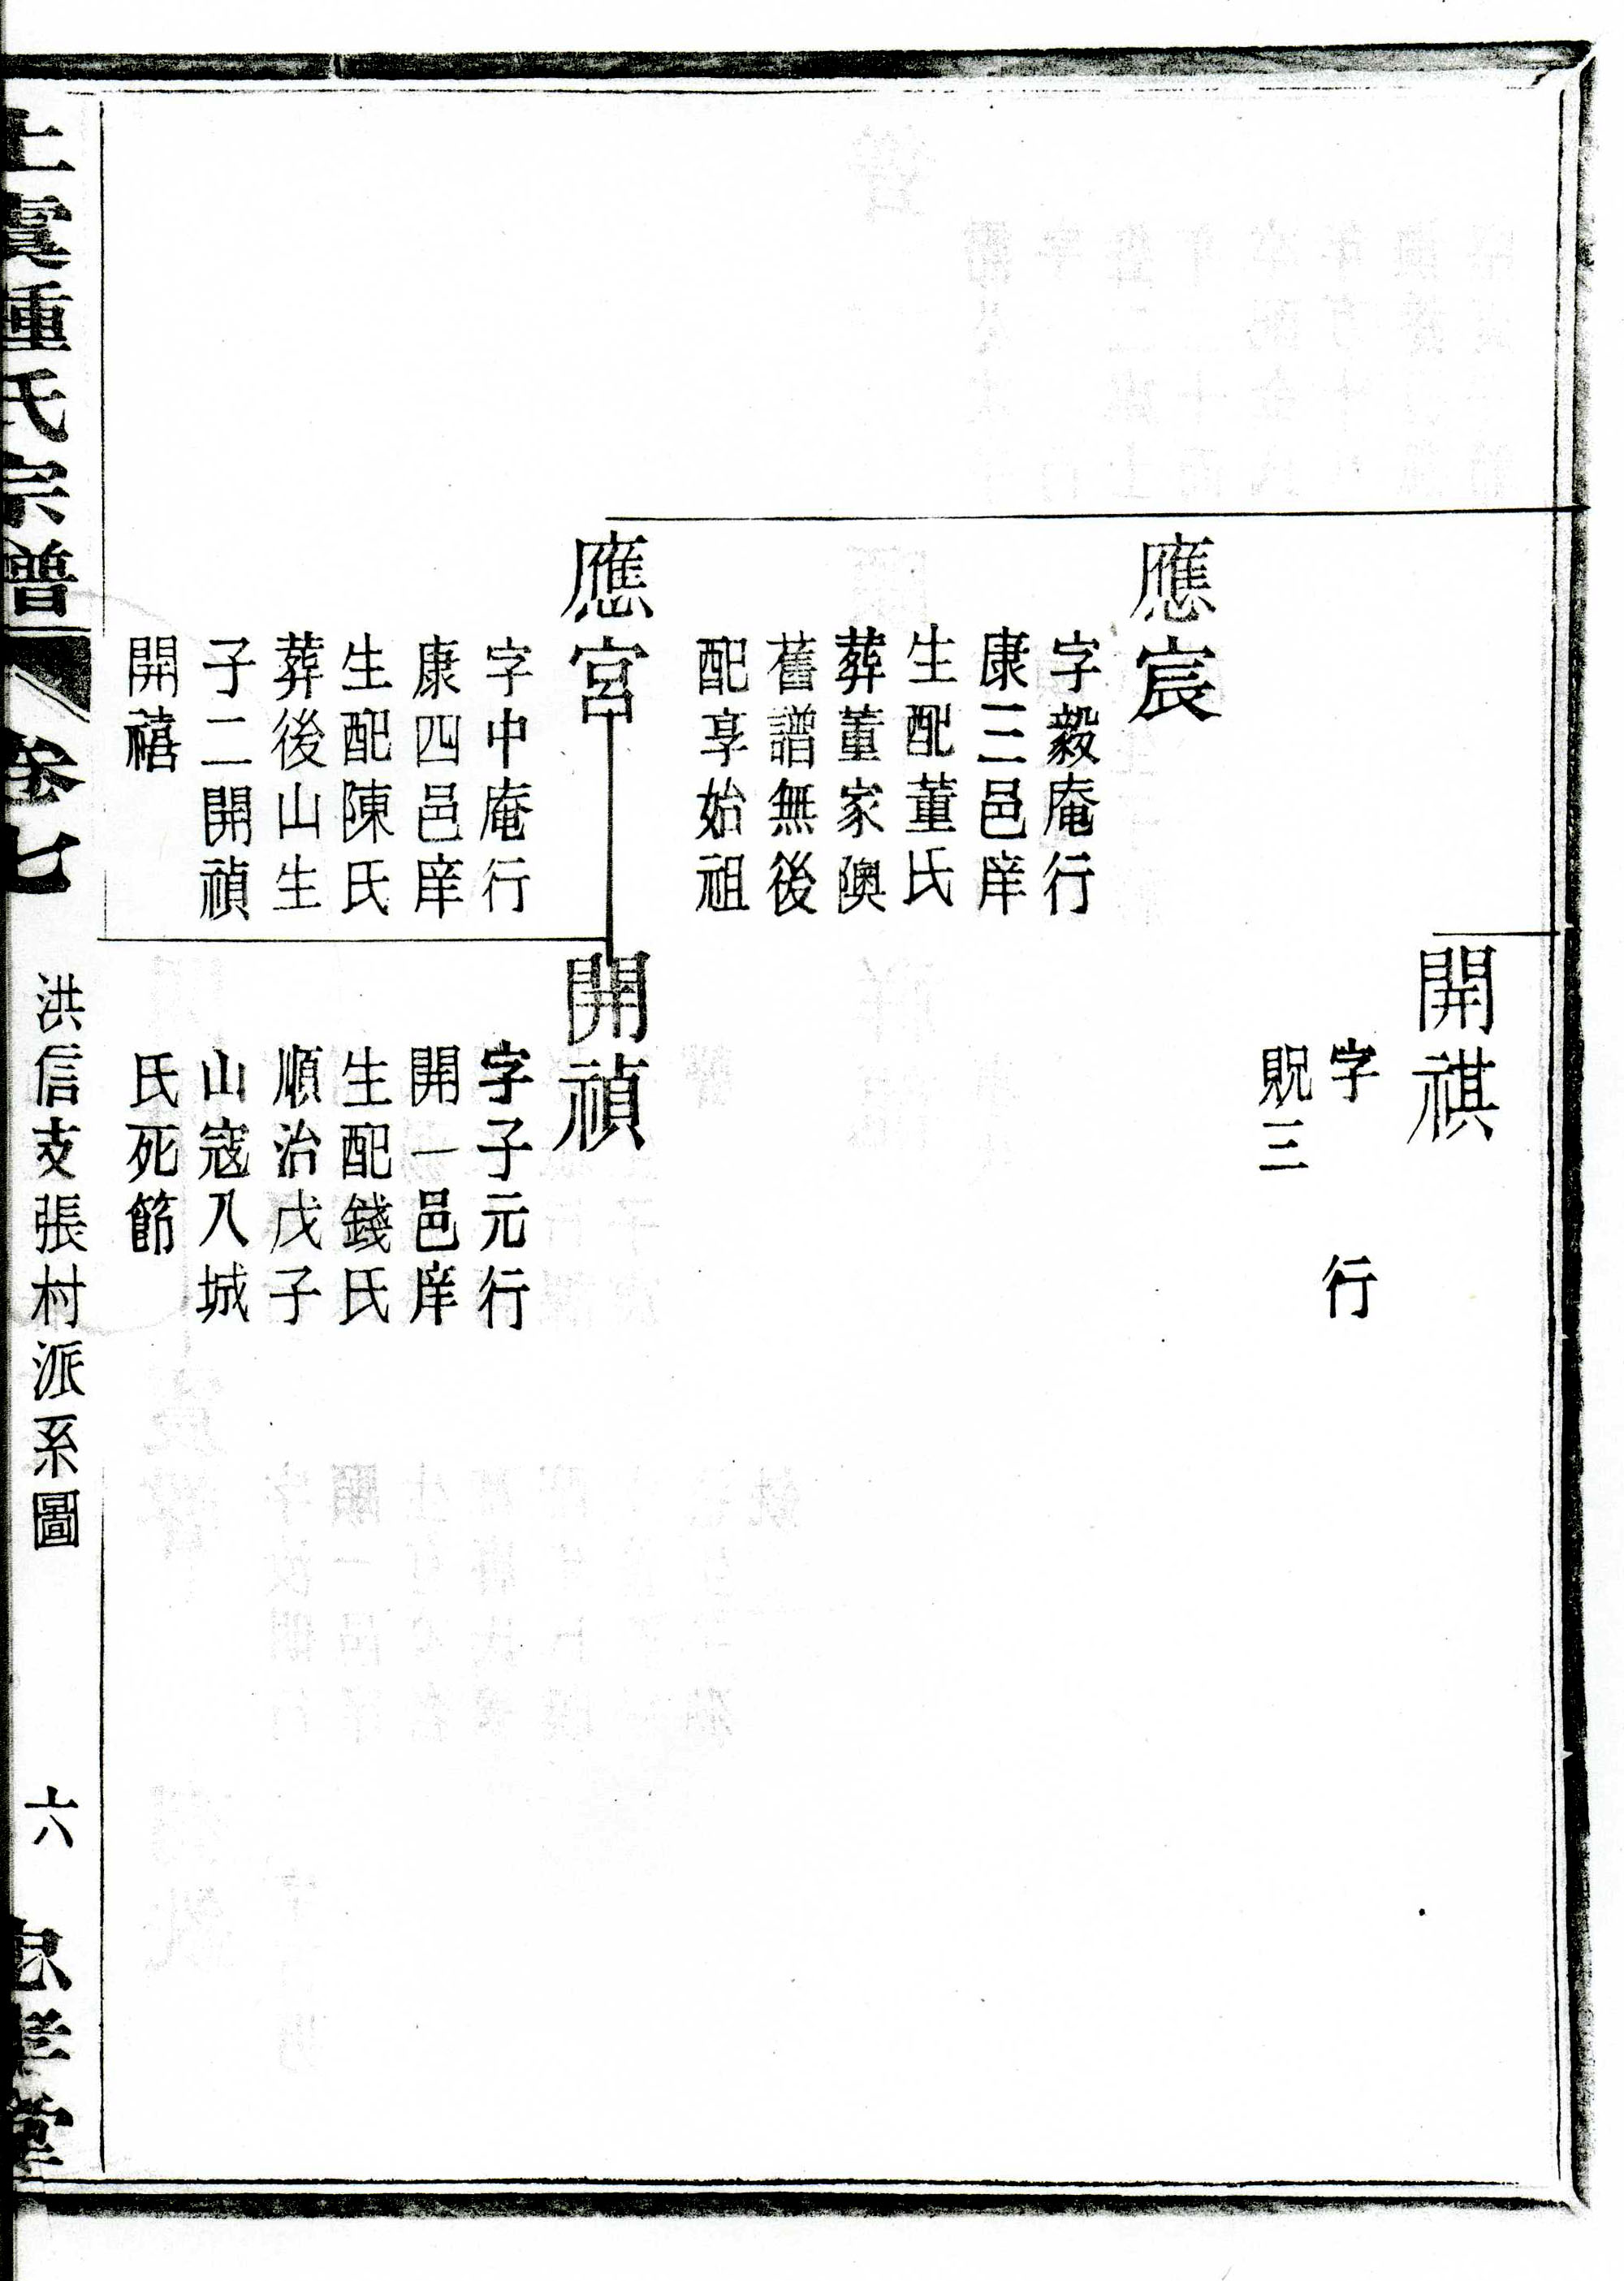 開祺
字　行
貺三
應宸
字毅庵行
康三邑庠
生配董氏
葬董家隩
舊譜無後
配享始祖
應宮
字中庵行
康四邑庠
生配陳氏
葬後山生
子二開禎
開禧
開禎
字子元行
開一邑庠
生配錢氏
順治戊子
山寇入城
氏死節
上虞鍾氏宗譜
卷七
洪信支張村派系圖
六
忠孝堂